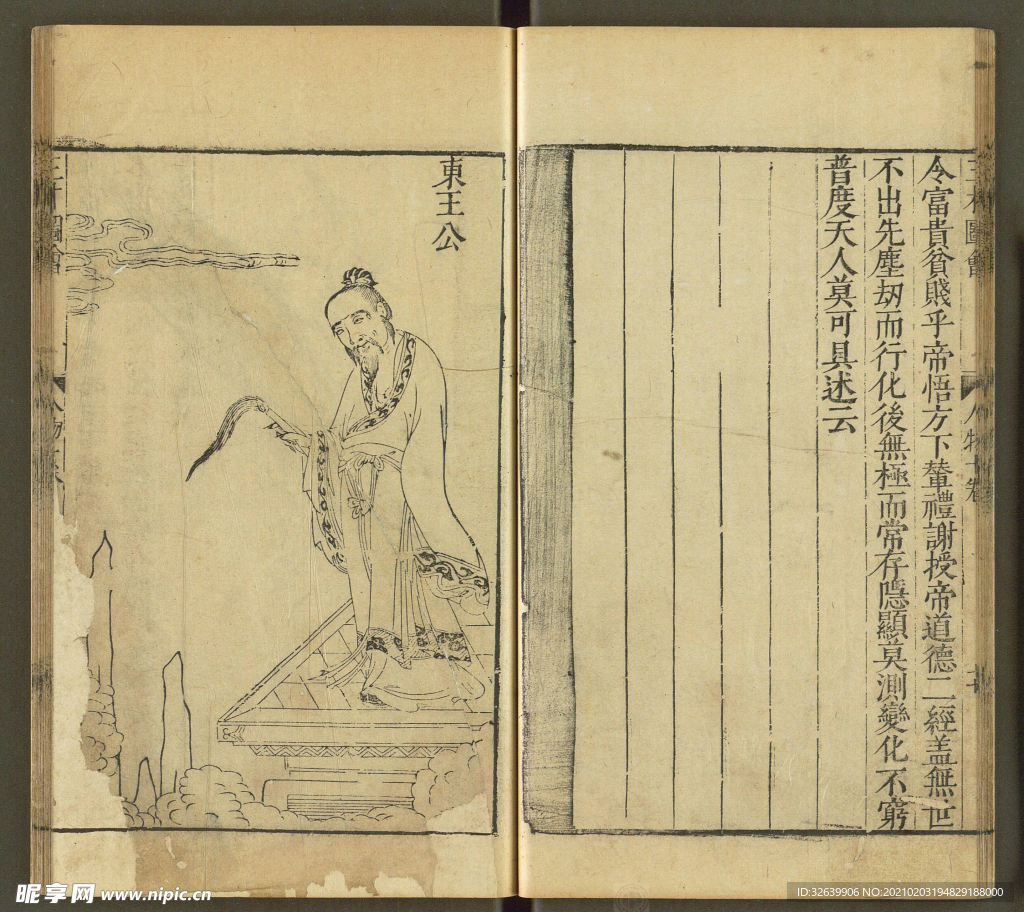 三才圖會
人物十卷
令富貴貧賤乎帝悟方下輦禮謝授帝道德二經盖無世
不出先塵刼而行化後無極而常存隱顯莫測變化不窮
普度天人莫可具述云
東王公
圖會
人物
昵享网 www.nipic.cn
ID:32639906 NO:20210203194829188000